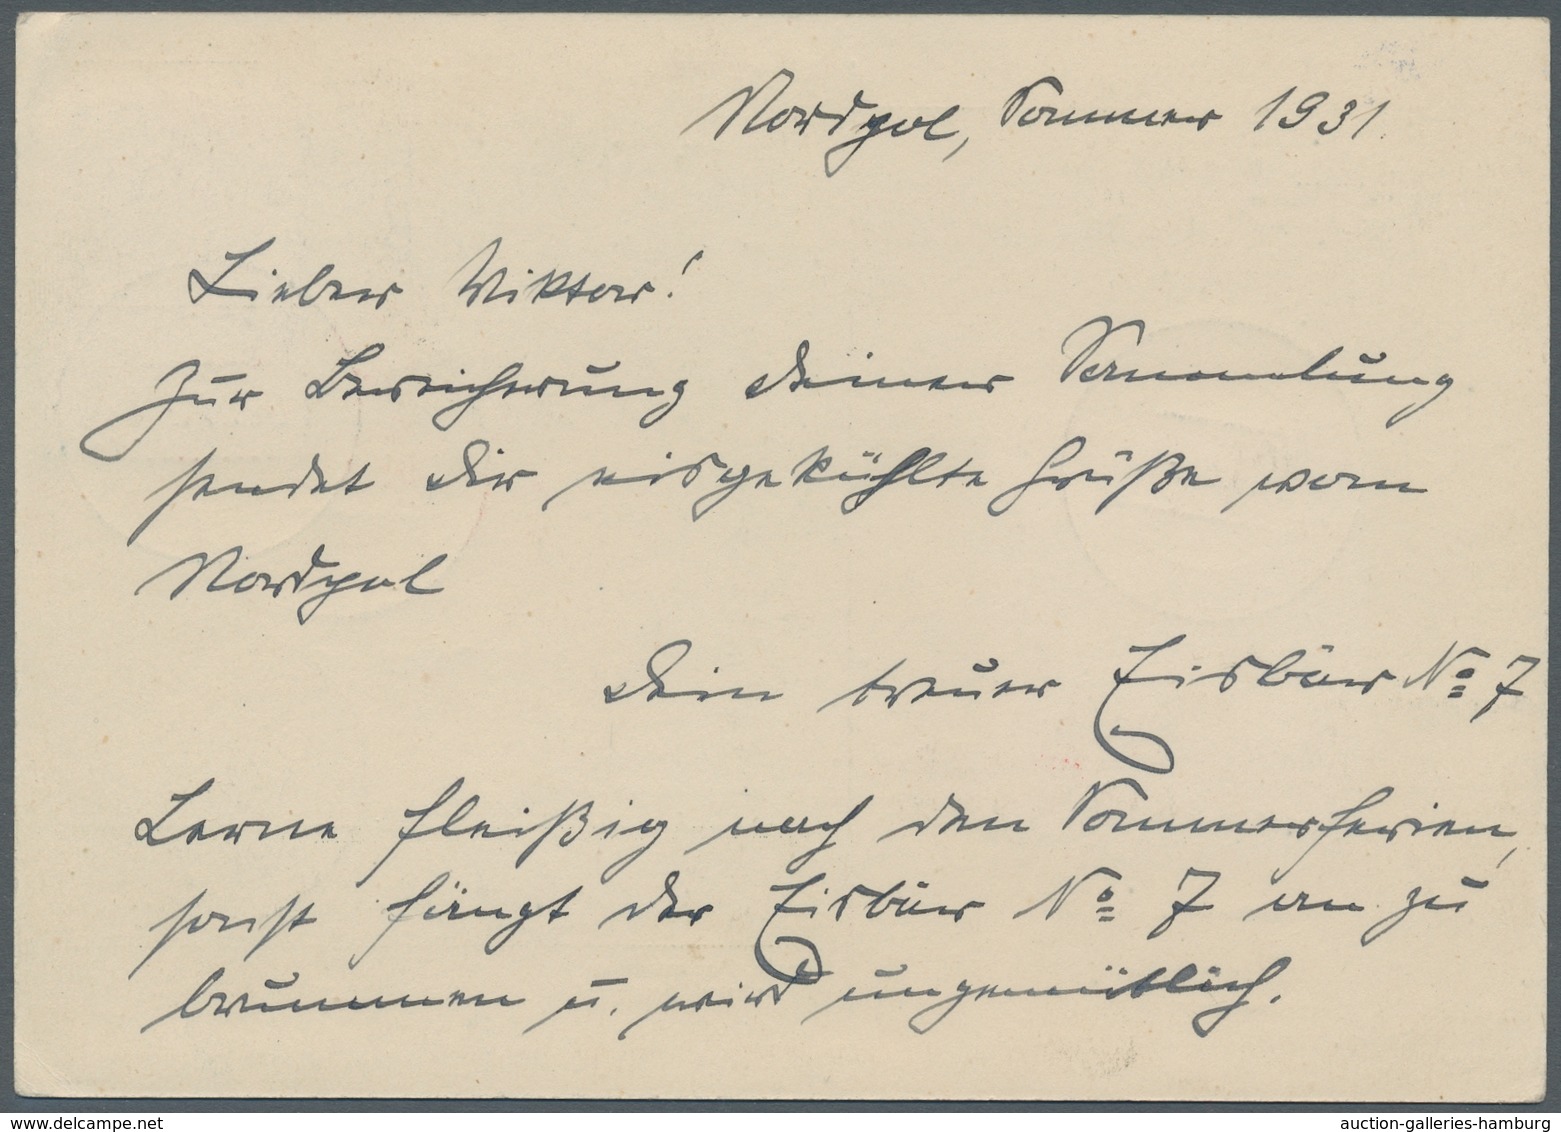 Nordpol, Sommer 1931.
Lieber Viktor!
Zur Bereicherung deiner Sammlung
sendet dir eisgekühlte Grüße vom
Nordpol
dein treuer Eisbär No 7
Lerne fleißig nach den Sommerferien,
sonst fängt der Eisbär No 7 an zu
brummen u. wird ungemütlich.
auction-galleries-hamburg